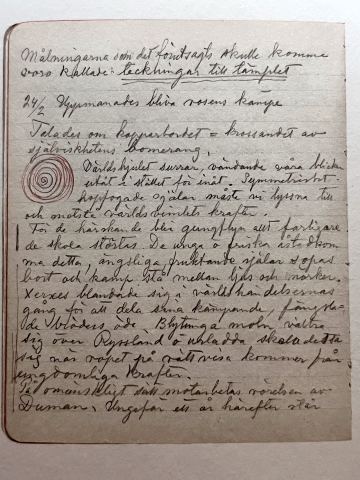 Målningarna som det förutsagts skulle komma
voro kallade: teckningar till templet
24/2 Uppmanades bliva rosens kämpe
Talades om kopparbordet = krossandet av
själviskhetens boomerang,
Världshjulet surrar, vändande våra blickar
utåt i stället för inåt. Symmetriskt-
hopfogade själar måste vi lyssna till
och motstå världsvimlets krafter.
För de härskande blir gungflyn allt farligare
de skola störtas. De unga o friska åstadkom
ma detta, ängsliga fruktande själar sopas
bort och kamp stå mellan ljus och mörker.
Xerxes blandade sig i världshändelsernas
gång för att dela sina kämpande, fängsla-
de bröders öde. Blytunga moln vältra
sig över Ryssland o urladda skola dessa
sig när ropet på rättvisa kommer från
ungdomliga krafter.
På omänskligt sätt motarbetas rörelsen av
Duman. Ungefär ett år härefter står